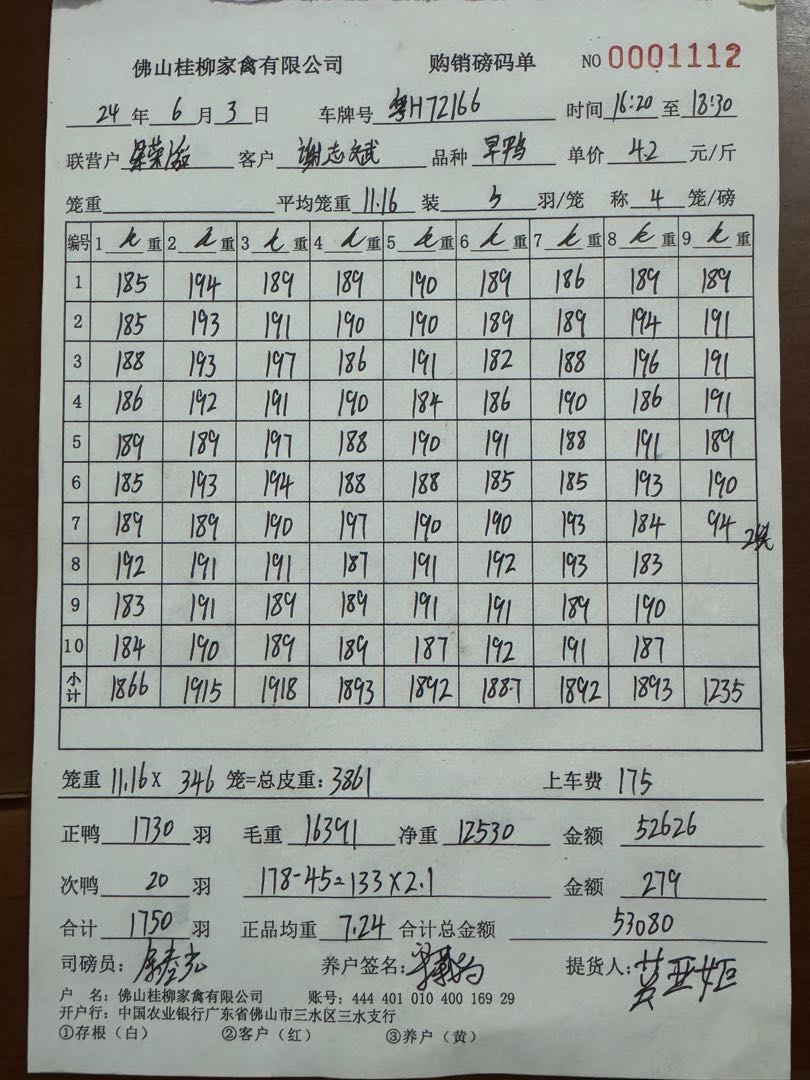 佛山桂柳家禽有限公司 购销磅码单 NO 0001112
24 年 6 月 3 日 车牌号 粤H72166 时间 16:20 至 18:30
联营户 客户 谢志斌 品种 旱鸭 单价 4.2 元/斤
笼重 平均笼重 11.16 装 5 羽/笼 称 4 笼/磅
编号 1 毛 重 2 毛 重 3 毛 重 4 毛 重 5 毛 重 6 毛 重 7 毛 重 8 毛 重 9 毛 重
1 185 194 189 189 190 189 186 189 189
2 185 193 191 190 190 189 189 194 191
3 188 193 197 186 191 182 188 196 191
4 186 192 191 190 184 186 190 186 191
5 189 189 197 188 190 191 188 191 189
6 185 193 194 188 188 185 185 193 190
7 189 189 190 197 190 190 193 184 94 2笼
8 192 191 191 187 191 192 193 183
9 183 191 189 189 191 191 189 190
10 184 190 189 189 187 192 191 187
小计 1866 1915 1918 1893 1892 1887 1892 1893 1235
笼重 11.16 X 346 笼=总皮重: 3861 上车费 175
正鸭 1730 羽 毛重 16391 净重 12530 金额 52626
次鸭 20 羽 178-45=133×2.1 金额 279
合计 1750 羽 正品均重 7.24 合计总金额 53080
司磅员: 养户签名: 提货人:
户 名: 佛山桂柳家禽有限公司 账号: 444 401 010 400 169 29
开户行: 中国农业银行广东省佛山市三水区三水支行
①存根（白） ②客户（红） ③养户（黄）